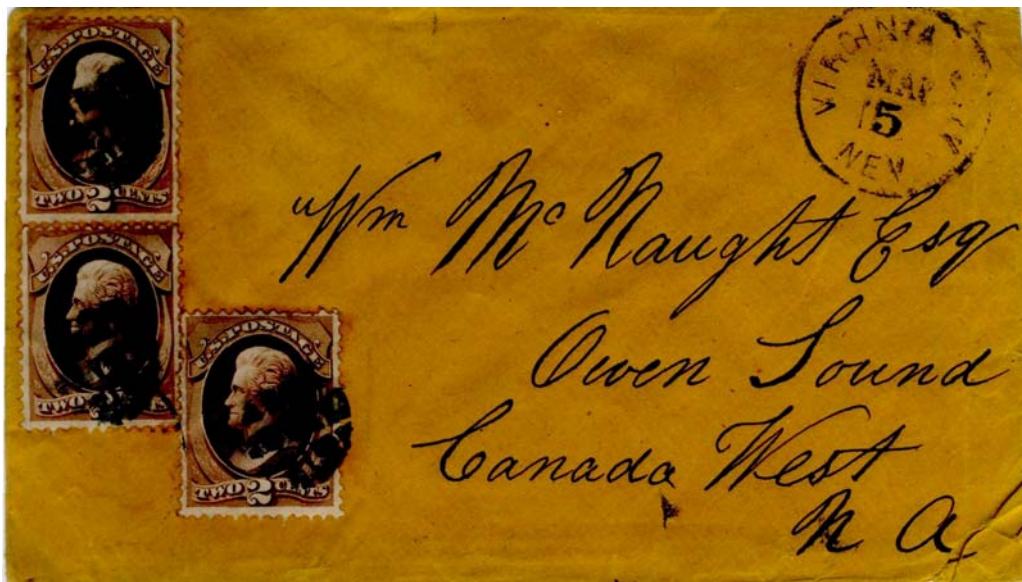 U.S. POSTAGE
TWO 2 CENTS
U.S. POSTAGE
TWO
U.S. POSTAGE
TWO 2 CENTS
VIRGINIA
MAR
15
NEV
Wm McNaught Esq
Owen Sound
Canada West
N A